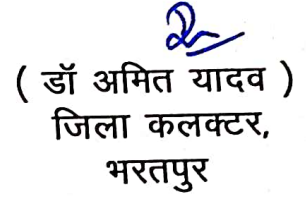 ( डॉ अमित यादव )
जिला कलक्टर,
भरतपुर